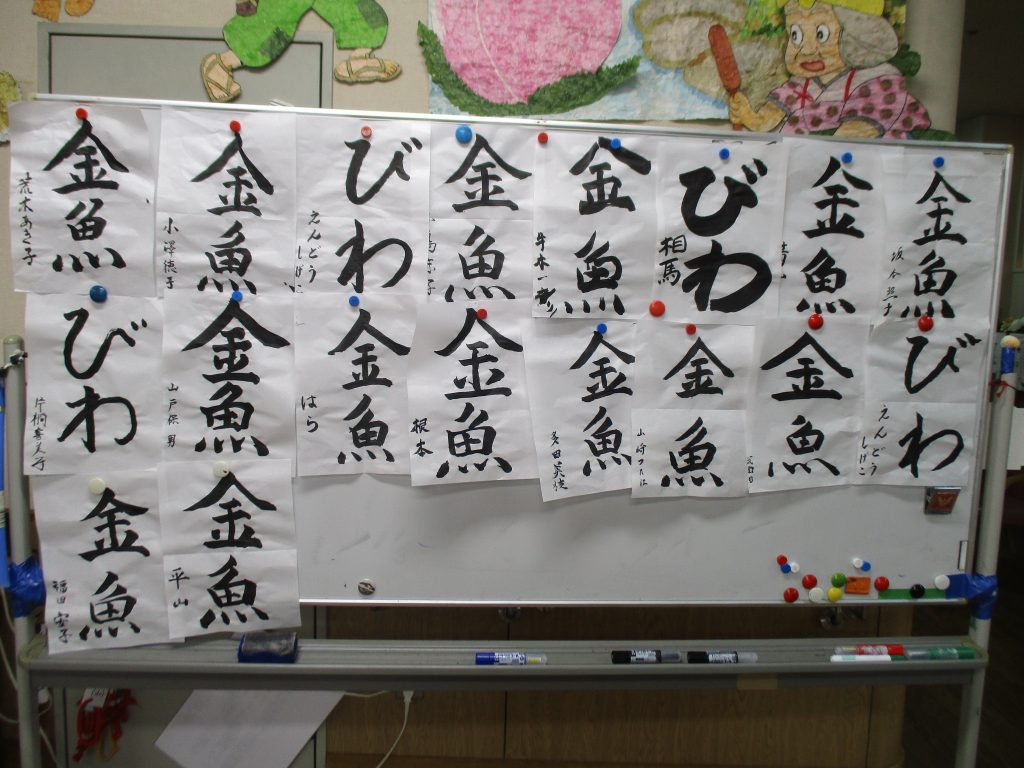 金魚
荒木あき子
金魚
小澤徳子
びわ
えんどう
しげこ
金魚
金魚
びわ
相馬
金魚
金魚
びわ
片桐喜美子
金魚
山戸保男
金魚
はら
金魚
根本
金魚
金魚
金魚
びわ
えんどう
しげこ
金魚
福田
金魚
平山